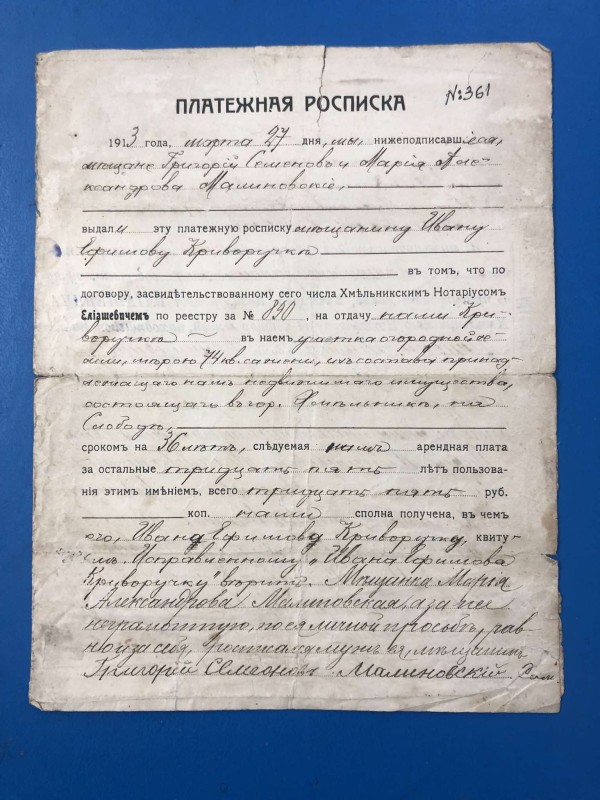 №361
ПЛАТЕЖНАЯ РОСПИСКА
1913 года, марта 27 дня, мы, нижеподписавшіеся,
мѣщане Григорій Семеновъ и Марія Але-
ксандрова Малиновскіе,
выдали эту платежную росписку мѣщанину Ивану
Ефимову Криворучкѣ
въ томъ, что по
договору, засвидѣтельствованному сего числа Хмѣльникским Нотаріусомъ
Еліашевичемъ по реестру за № 890, на отдачу нами Кри-
воручкѣ въ наемъ участка огородной зе-
мли, мѣрою 74 кв. сажени, изъ состава принад-
лежащаго намъ недвижимаго имущества,
состоящаго въ гор. Хмѣльникѣ, на
Слободѣ,
сроком на 36 лѣтъ, слѣдуемая намъ арендная плата
за остальные тридцать пять лѣтъ пользова-
нія этимъ имѣніемъ, всего тридцать пять руб.
коп. нами сполна получена, въ чемъ
его, Ивана Ефимова Криворучку, квиту-
емъ. Исправленному „Ивана Ефимова
Криворучку" вѣрить. Мѣщанка Марія
Александрова Малиновская, а за нее
неграмотную, по ея личной просьбѣ, рав-
но и за себя, росписался мужъ ея, мѣщанинъ
Григорій Семеоновъ Малиновскій